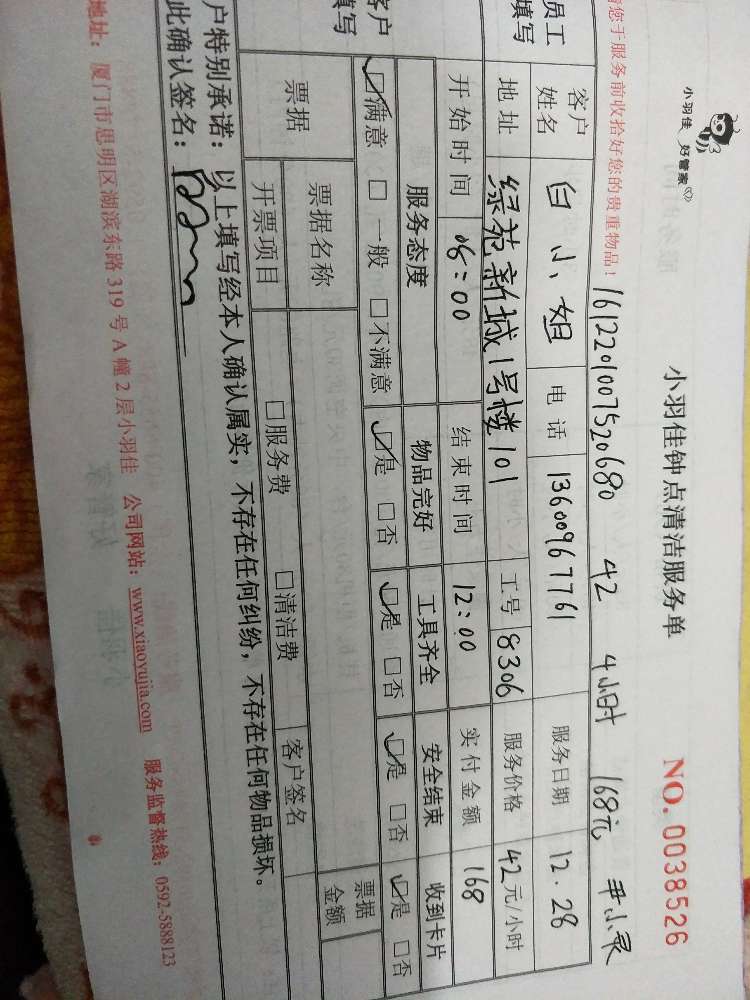 小羽佳 好管家
小羽佳钟点清洁服务单
NO. 0038526
您于服务前收拾好您的贵重物品!
1612201007520680 42 4小时 168元 尹小灵
员工
填写
客户
姓名 白小姐 电话 13600967761 服务日期 12.28
地址 绿苑新城1号楼101 工号 8306 服务价格 42元/小时
开始时间 08:00 结束时间 12:00 实付金额 168
客户
填写
服务态度 物品完好 工具齐全 安全结束 收到卡片
☑满意 □一般 □不满意 ☑是 □否 ☑是 □否 ☑是 □否 ☑是 □否
票据 票据名称 票据
金额
开票项目 □服务费 □清洁费 客户签名
户特别承诺:以上填写经本人确认属实,不存在任何纠纷,不存在任何物品损坏。
此确认签名:
地址:厦门市思明区湖滨东路319号A幢2层小羽佳 公司网站:www.xiaoyujia.com 服务监督热线:0592-5888123